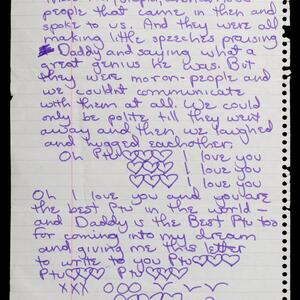 people that came in then and
spoke to us. And they were all
making little speeches praising
Daddy and saying what a
great genius he was. But
they were moron-people and
we couldnt communicate
with them at all. We could
only be polite till they went
away and then we laughed
and hugged eachother.
Oh Ptu I love you
I love you
I love you
Oh I love you and you are
the best Ptu in the world -
and Daddy is the Best Ptu too
for coming into my dream
and giving me this letter
to write to you Ptu
Ptu Ptu
XXX OOO